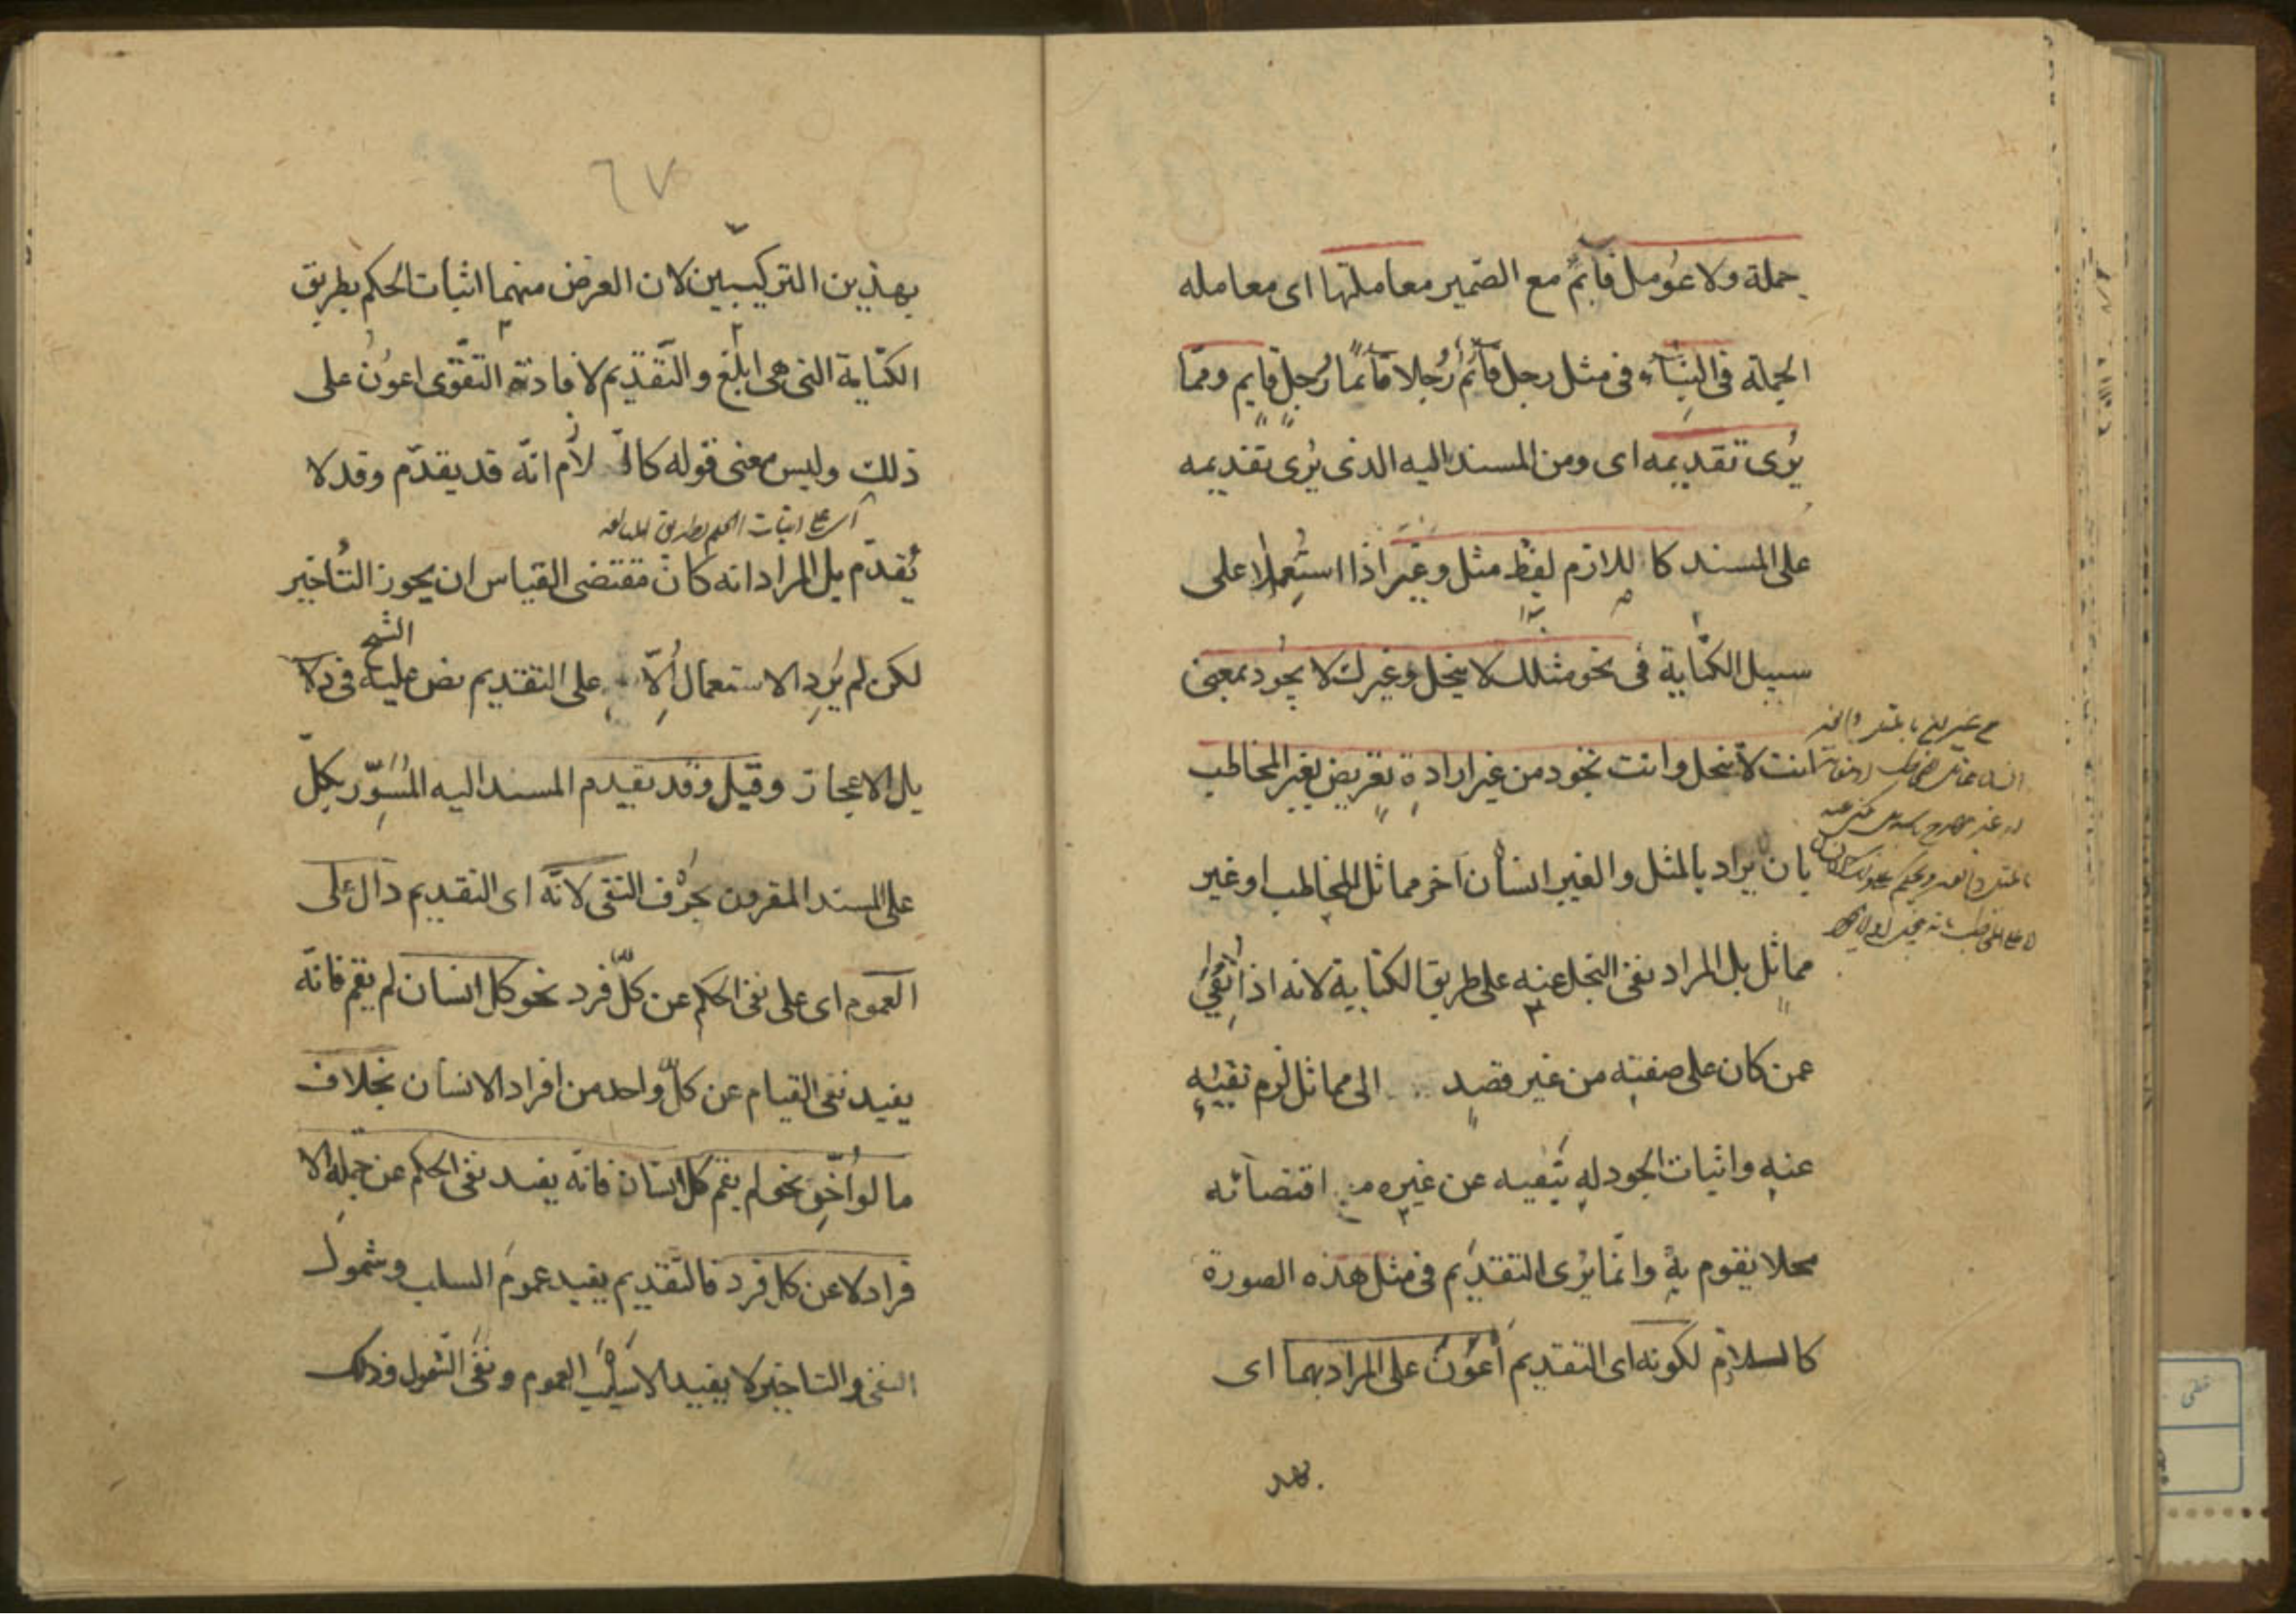 جملة ولا عُومل قآئمٌ مع الضمير معاملتها اى معامله
الجملة فى البنآء فى مثل رجل قآئمٌ رُجلا قآئمًا رُجلٍ قايم وممّا
يُرى تقديمه اى ومن المسند اليه الذى يُرى تقديمه
على المسند كا للازم لفظ مثل وغير اذا استُعمِلا على
سبيل الكنّاية فى نحو مثلك لا يبخل وغيرك لا يجُود بمعنى
انت لا تبخل وانت تجود من غير ارادةِ تعريضٍ بغير المخاطب
بان يراد بالمثل والغير انسان آخر مماثل للمخاطب او غير
مماثل بل المراد نفى البخل عنه على طريق الكناية لانه اذا نُفِىَ
عمن كان على صفته من غير قصدٍ الى مماثل لزم نفيُهِ
عنهِ واثبات الجود لهِ بنفيه عن غيره مع اقتضائه
محلا يقوم بهِ وانّما يُرى التقديم فى مثل هذه الصورة
كاللازم لكونه اى التقديم أعوَنَ على المراد بهما اى
بهذ
٦٧
بهذين التركيبين لان الغرض منهما اثبات الحكم بطريق
الكنّاية التى هى ابلَغ والتّقديم لافادته التقوّى اعونُ على
ذلك وليس معنى قوله كاللازم انّه قد يقدّم وقد لا
اى على اثبات الحكم بطريق المبالغه
يُقدّم بل المراد انه كان مقتضى القياس ان يجوز التّاخير
لكن لم يَرِدِ الاستعمال اِلاّ على التقديم نص عليه الشيخ فى دلا
يل الاعجاز وقيل وقد يقدم المسند اليه المُسَوّر بكلّ
على المسند المقرون بحرْف النفى لانّه اى التقديم دال على
العموم اى على نفى الحكم عن كلّ فرد نحو كل انسان لم يقم فانّه
يفيد نفى القيام عن كلّ واحد من افراد الانسان بخلاف
ما لو اُخّرِ نحو لم يقم كل انسان فانّه يفيد نفى الحكم عن جملة الا
فراد لا عن كل فرد فالتقديم يفيد عموم السلب وشمول
النفى والتاخير لا يفيد الا سَلبَ العموم ونفى الشمول وذلك